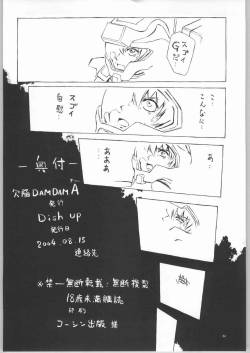 スゴイ
Gだ…
こんなに…
スゴイ
自慰…
あ
ああ
―奥付―
欠脳DAMDAM Å
発行
Dish up
発行日
2004.08.15
連絡先
※禁―無断転載:無断模製
18歳未満雑誌
印刷
コーシン出版 様